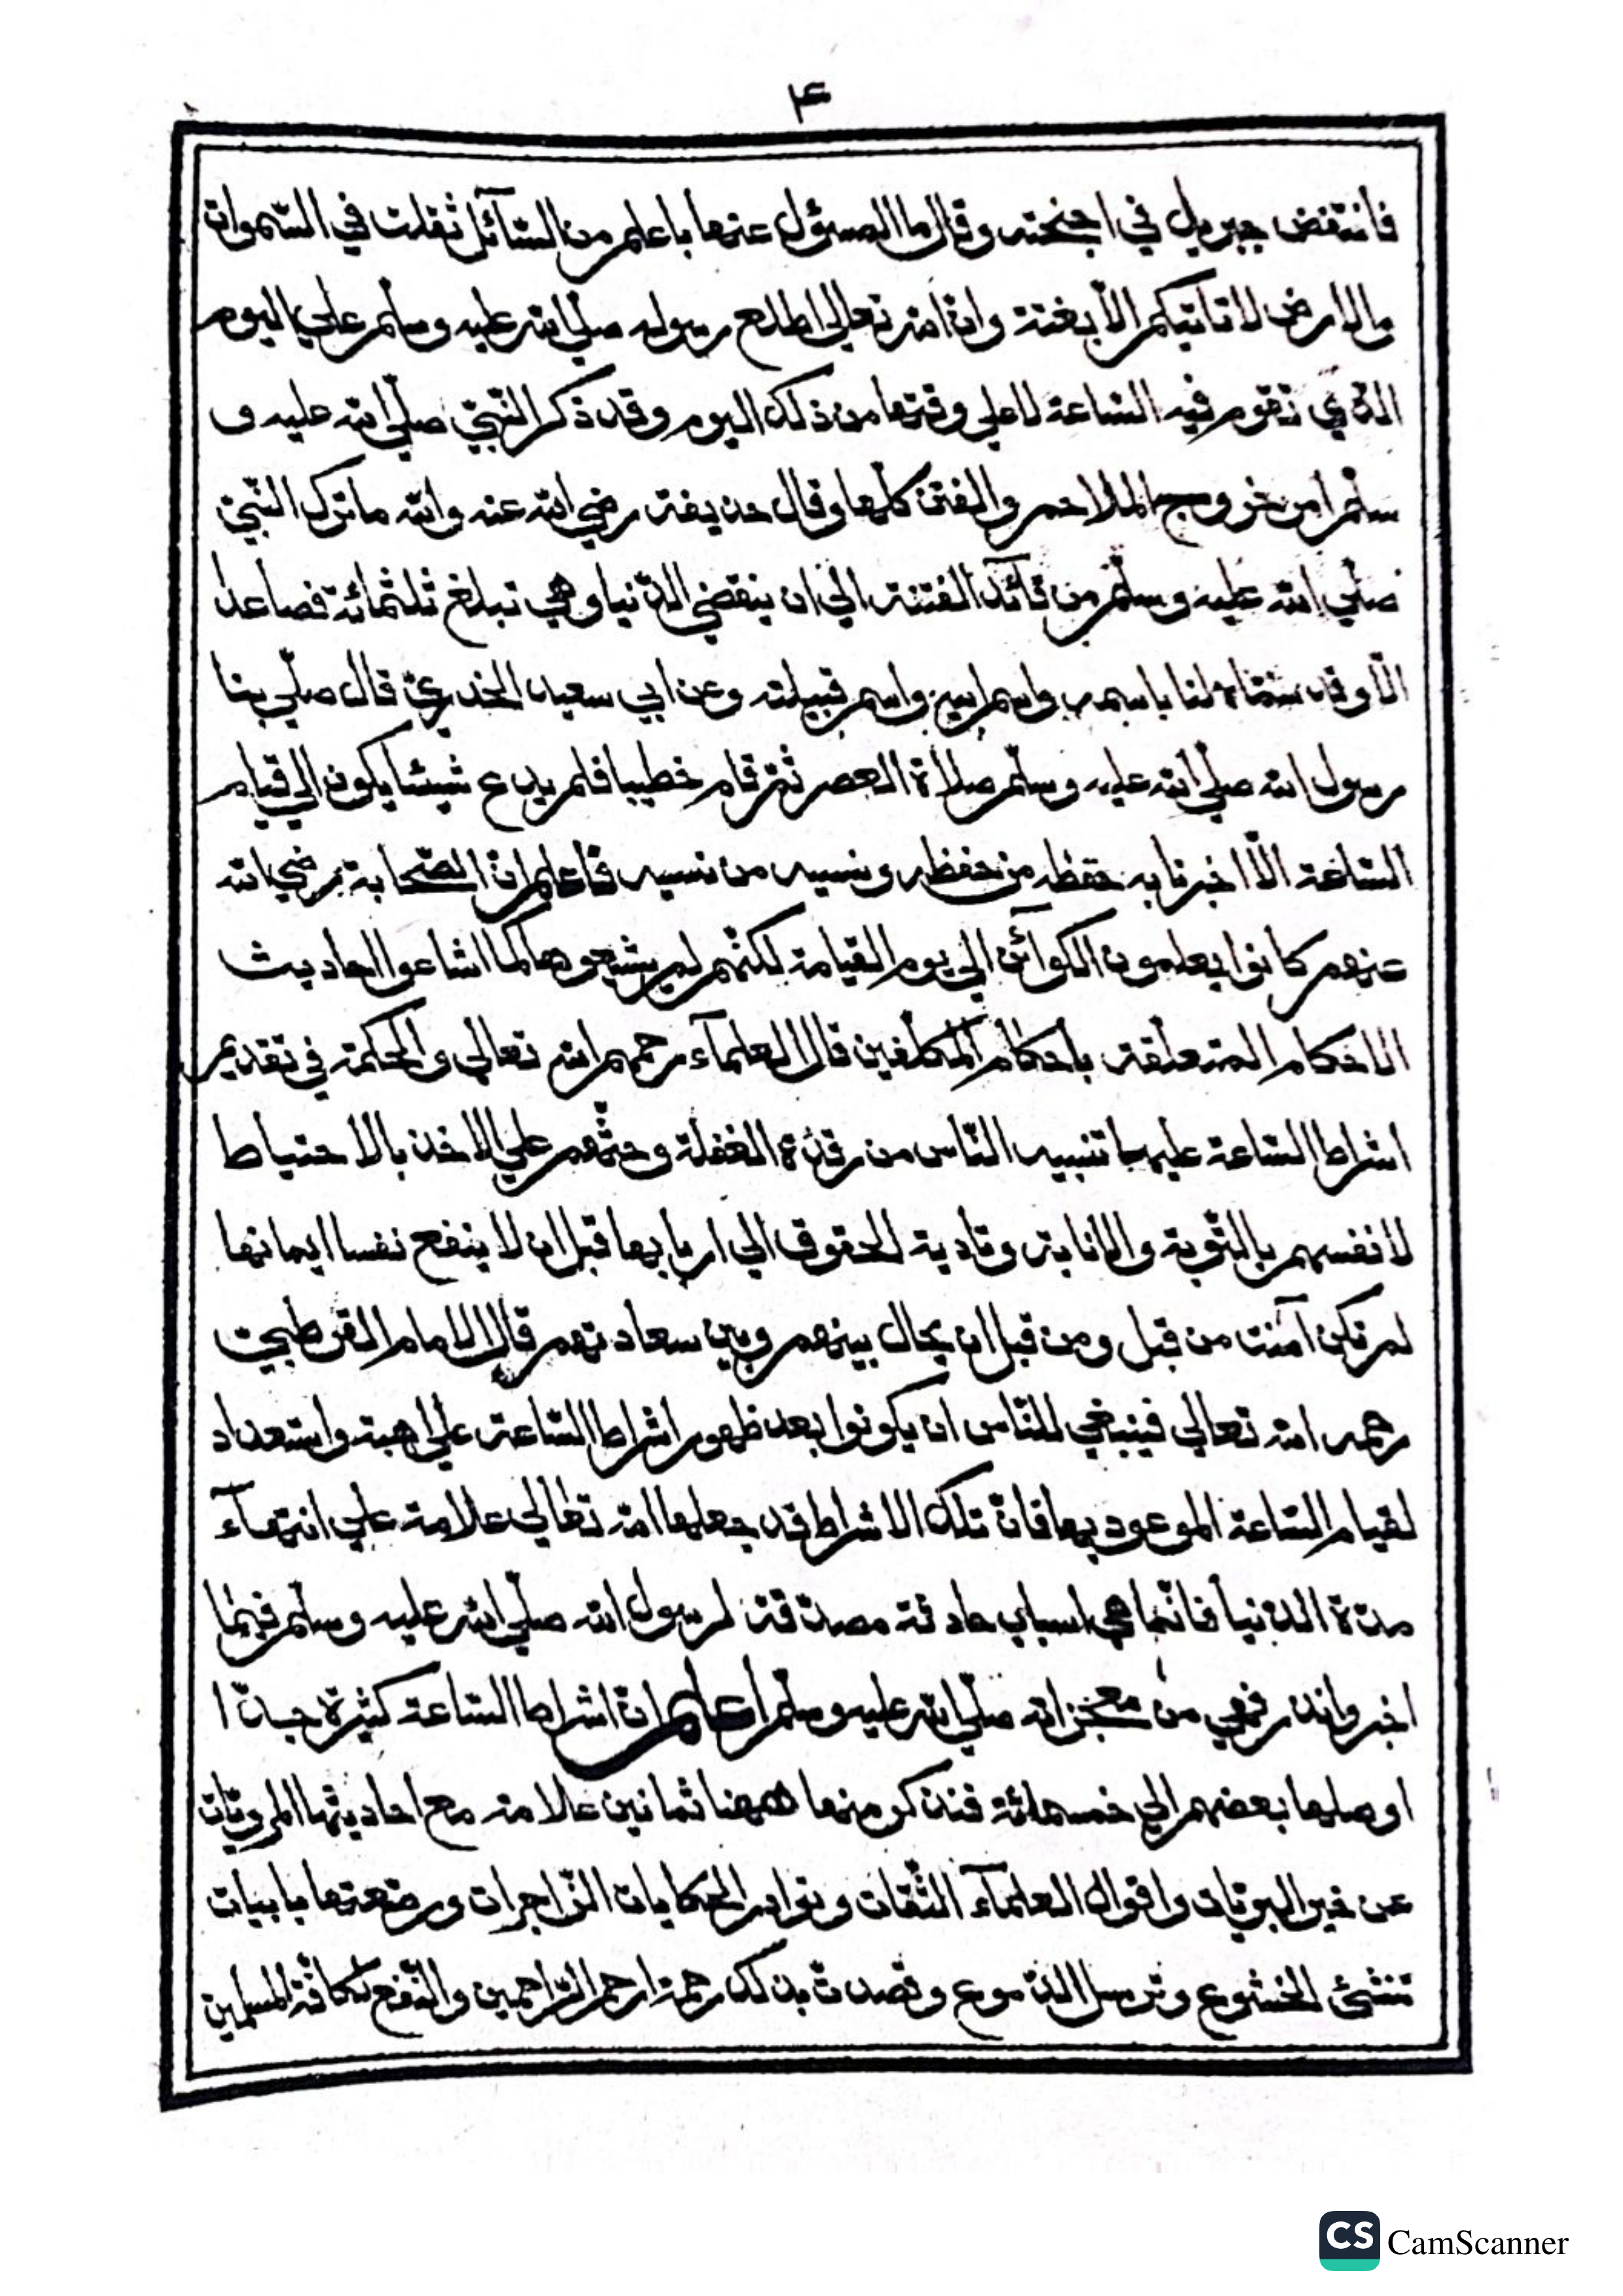 ۴
فانتفض جبريل في اجنحته وقال ما المسؤل عنها باعلم من السّآئل ثقلت في السّموات
والارض لا تاتيكم الّا بغتة وانّ الله تعالي اطلع رسوله صلّي الله عليه وسلّم علي اليوم
الذي تقوم فيه السّاعة لا علي وقتها من ذلك اليوم وقد ذكر النّبيّ صلّي الله عليه و
سلّم امن خروج الملاحم والفتن كلّها وقال حذيفة رضي الله عنه والله ما ترك النّبيّ
صلّي الله عليه وسلّم من قآئد الفتنة الي ان ينقضي الدّنيا وهي تبلغ ثلثمائة فصاعدا
الّا وقد سمّاه لنا باسمه واسم ابيه واسم قبيلته وعن ابي سعيد الخدريّ قال صلّي بنا
رسول الله صلّي الله عليه وسلّم صلاة العصر ثمّ قام خطيبا فلم يدع شيئا يكون الي قيام
السّاعة الّا اخبرنا به حفظه من حفظه ونسيه من نسيه فاعلم انّ الصّحابة رضي الله
عنهم كانوا يعلمون الكوآئن الي يوم القيامة لكنّهم لم يشيعوها كما اشاعوا احاديث
الاحكام المتعلّقة باحكام المكلّفين قال العلمآء رحمهم الله تعالي والحكمة في تقديم
اشراط السّاعة عليها تنبيه النّاس من رقدة الغفلة وحثّهم علي الاخذ بالاحتياط
لانفسهم بالتّوبة والانابة وتادية الحقوق الي اربابها قبل ان لا ينفع نفسا ايمانها
لم تكن آمنت من قبل ومن قبل ان يحال بينهم وبين سعادتهم قال الامام القرطبيّ
رحمه الله تعالي فينبغي للنّاس ان يكونوا بعد ظهور اشراط السّاعة علي اهبة واستعداد
لقيام السّاعة الموعود بها فانّ تلك الاشراط قد جعلها الله تعالي علامة علي انتهآء
مدّة الدّنيا فانّما هي اسباب حادثة مصدّقة لرسول الله صلّي الله عليه وسلّم فيما
اخبر وانذر فهي من معجزاته صلّي الله عليه وسلّم اعلم انّ اشراط السّاعة كثيرة جدّا
اوصلها بعضهم الي خمسمائة فنذكر منها ههنا ثمانين علامة مع احاديثها المرويّات
عن خير البريّات واقوال العلمآء الثّقات ونوادر الحكايات الزّاجرات ورصّعتها بابيات
تنشئ الخشوع وترسل الدّموع وقصدت بذلك رحمة ارحم الرّاحمين والنّفع لكافّة المسلمين
CS CamScanner